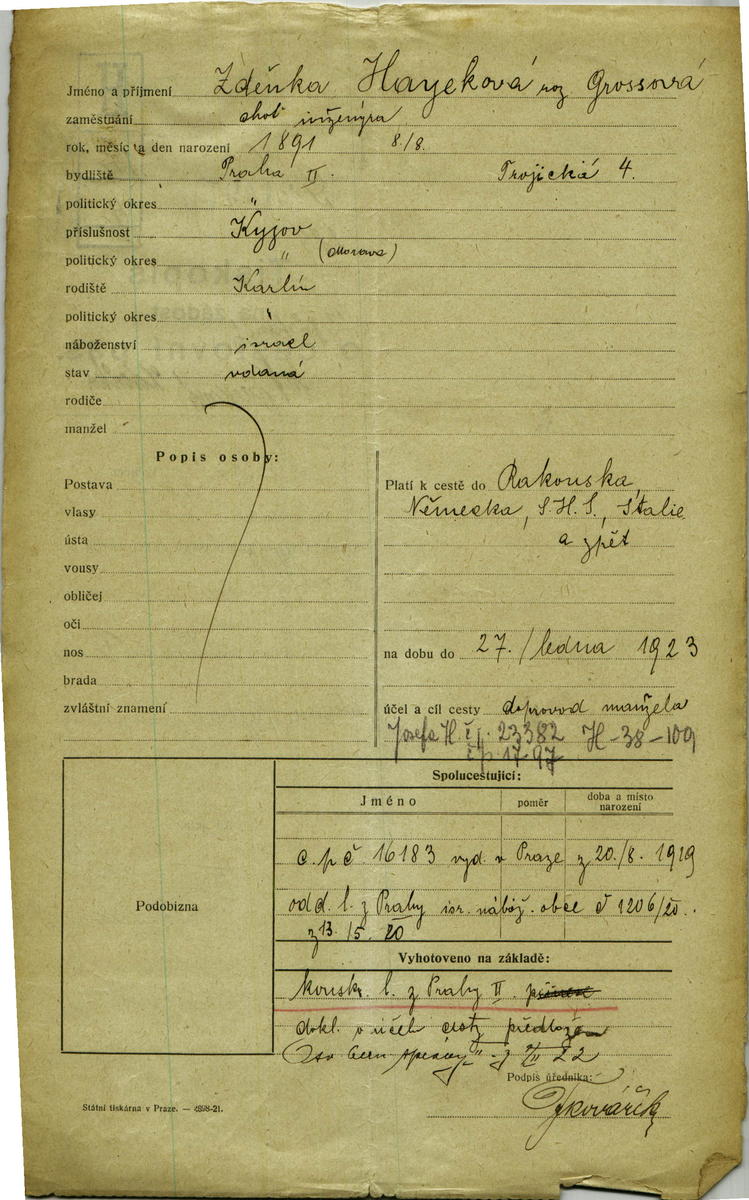 Jméno a příjmení Zdeňka Hayeková roz Grossová
zaměstnání choť inženýra
rok, měsíc a den narození 1891 8./8.
bydliště Praha II. Trojická 4.
politický okres "
příslušnost Kyjov
politický okres " (Morava)
rodiště Karlín
politický okres "
náboženství israel
stav vdaná
rodiče
manžel
Popis osoby:
Postava
vlasy
ústa
vousy
obličej
oči
nos
brada
zvláštní znamení
Platí k cestě do Rakouska,
Německa, S.H.S., Italie
a zpět
na dobu do 27./ledna 1923
účel a cíl cesty doprovod manžela
Josefa H čj. 23382 H-38-109
čp 17-97
Spolucestující:
Jméno poměr doba a místo narození
c. p. č 16183 vyd. v Praze z 20./8. 1919
odd. l. z Prahy isr. nábož. obce č 1206/20.
z 13./5. 20
Podobizna
Vyhotoveno na základě:
l. z Prahy II.
dokl. o účel cesty předložen
22
Podpis úředníka:
Kovářík
Státní tiskárna v Praze. — 4898-21.